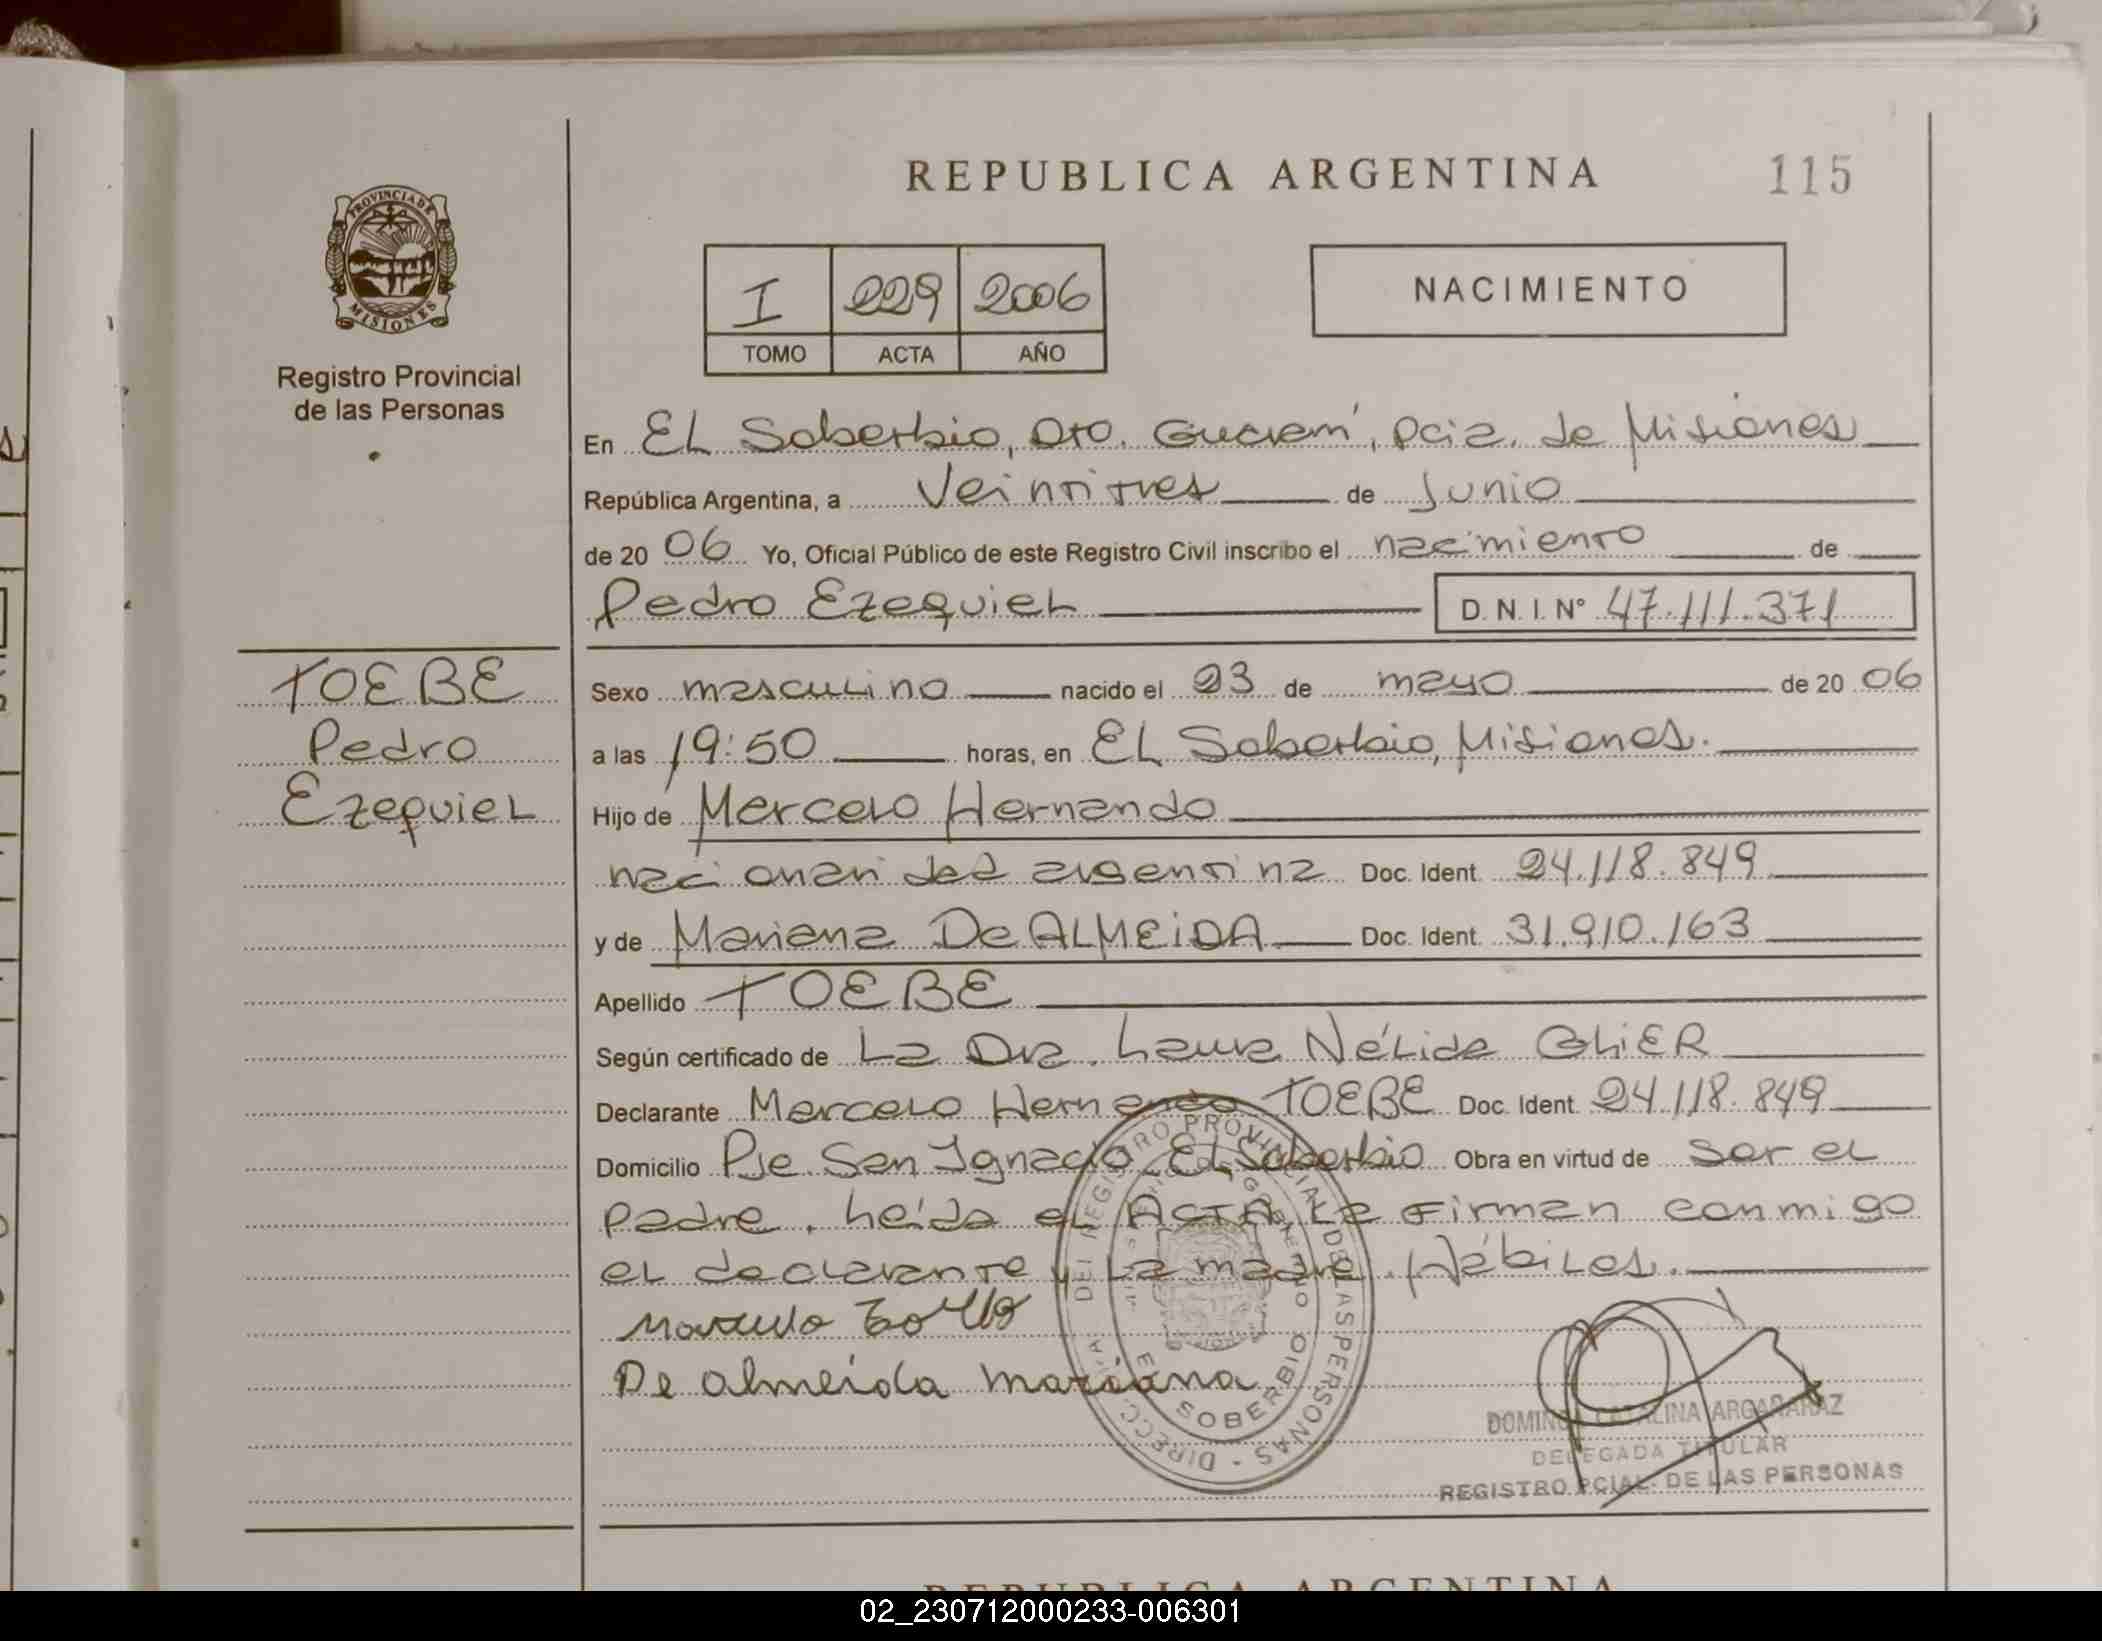 REPUBLICA ARGENTINA 115
PROVINCIA DE MISIONES
Registro Provincial
de las Personas
I 229 2006
TOMO ACTA AÑO
NACIMIENTO
En El Soberbio, Dto. Guaraní, Pcia. de Misiones
República Argentina, a Veintitres de Junio
de 20 06 Yo, Oficial Público de este Registro Civil inscribo el nacimiento de
Pedro Ezequiel D.N.I. N° 47.111.371
TOEBE
Pedro
Ezequiel
Sexo masculino nacido el 23 de mayo de 20 06
a las 19:50 horas, en El Soberbio, Misiones.
Hijo de Marcelo Hernando
nacionalidad argentina Doc. Ident. 24.118.849
y de Mariana De ALMEiDA Doc. Ident. 31.910.163
Apellido TOEBE
Según certificado de La Dra. Laura Nélida GLIER
Declarante Marcelo Hernando TOEBE Doc. Ident. 24.118.849
Domicilio Pje San Ignacio El Soberbio Obra en virtud de ser el
padre. Leída el ACTA, la firman conmigo
el declarante y la madre. Hábiles.
De almeida mariana
DIRECC. DEL REGISTRO PROVINCIAL DE LAS PERSONAS
SOBERBIO
DOMINGA CATALINA ARGAÑARAZ
DELEGADA TITULAR
REGISTRO PCIAL. DE LAS PERSONAS
REPUBLICA ARGENTINA
02_230712000233-006301